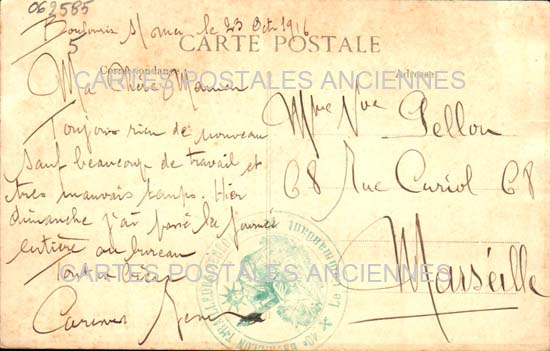 062585
le 23 Oct 1916
5
CARTE POSTALE
Correspondance
Adresse
CARTES POSTALES ANCIENNES
Ma Chère Maman
Toujours rien de nouveau
sauf beaucoup de travail et
très mauvais temps. Hier
dimanche j'ai passé la journée
entière au bureau
Tout à bien
Mme Vve Pellon
68 Rue Curiol 68
Marseille
CARTES POSTALES ANCIENNES